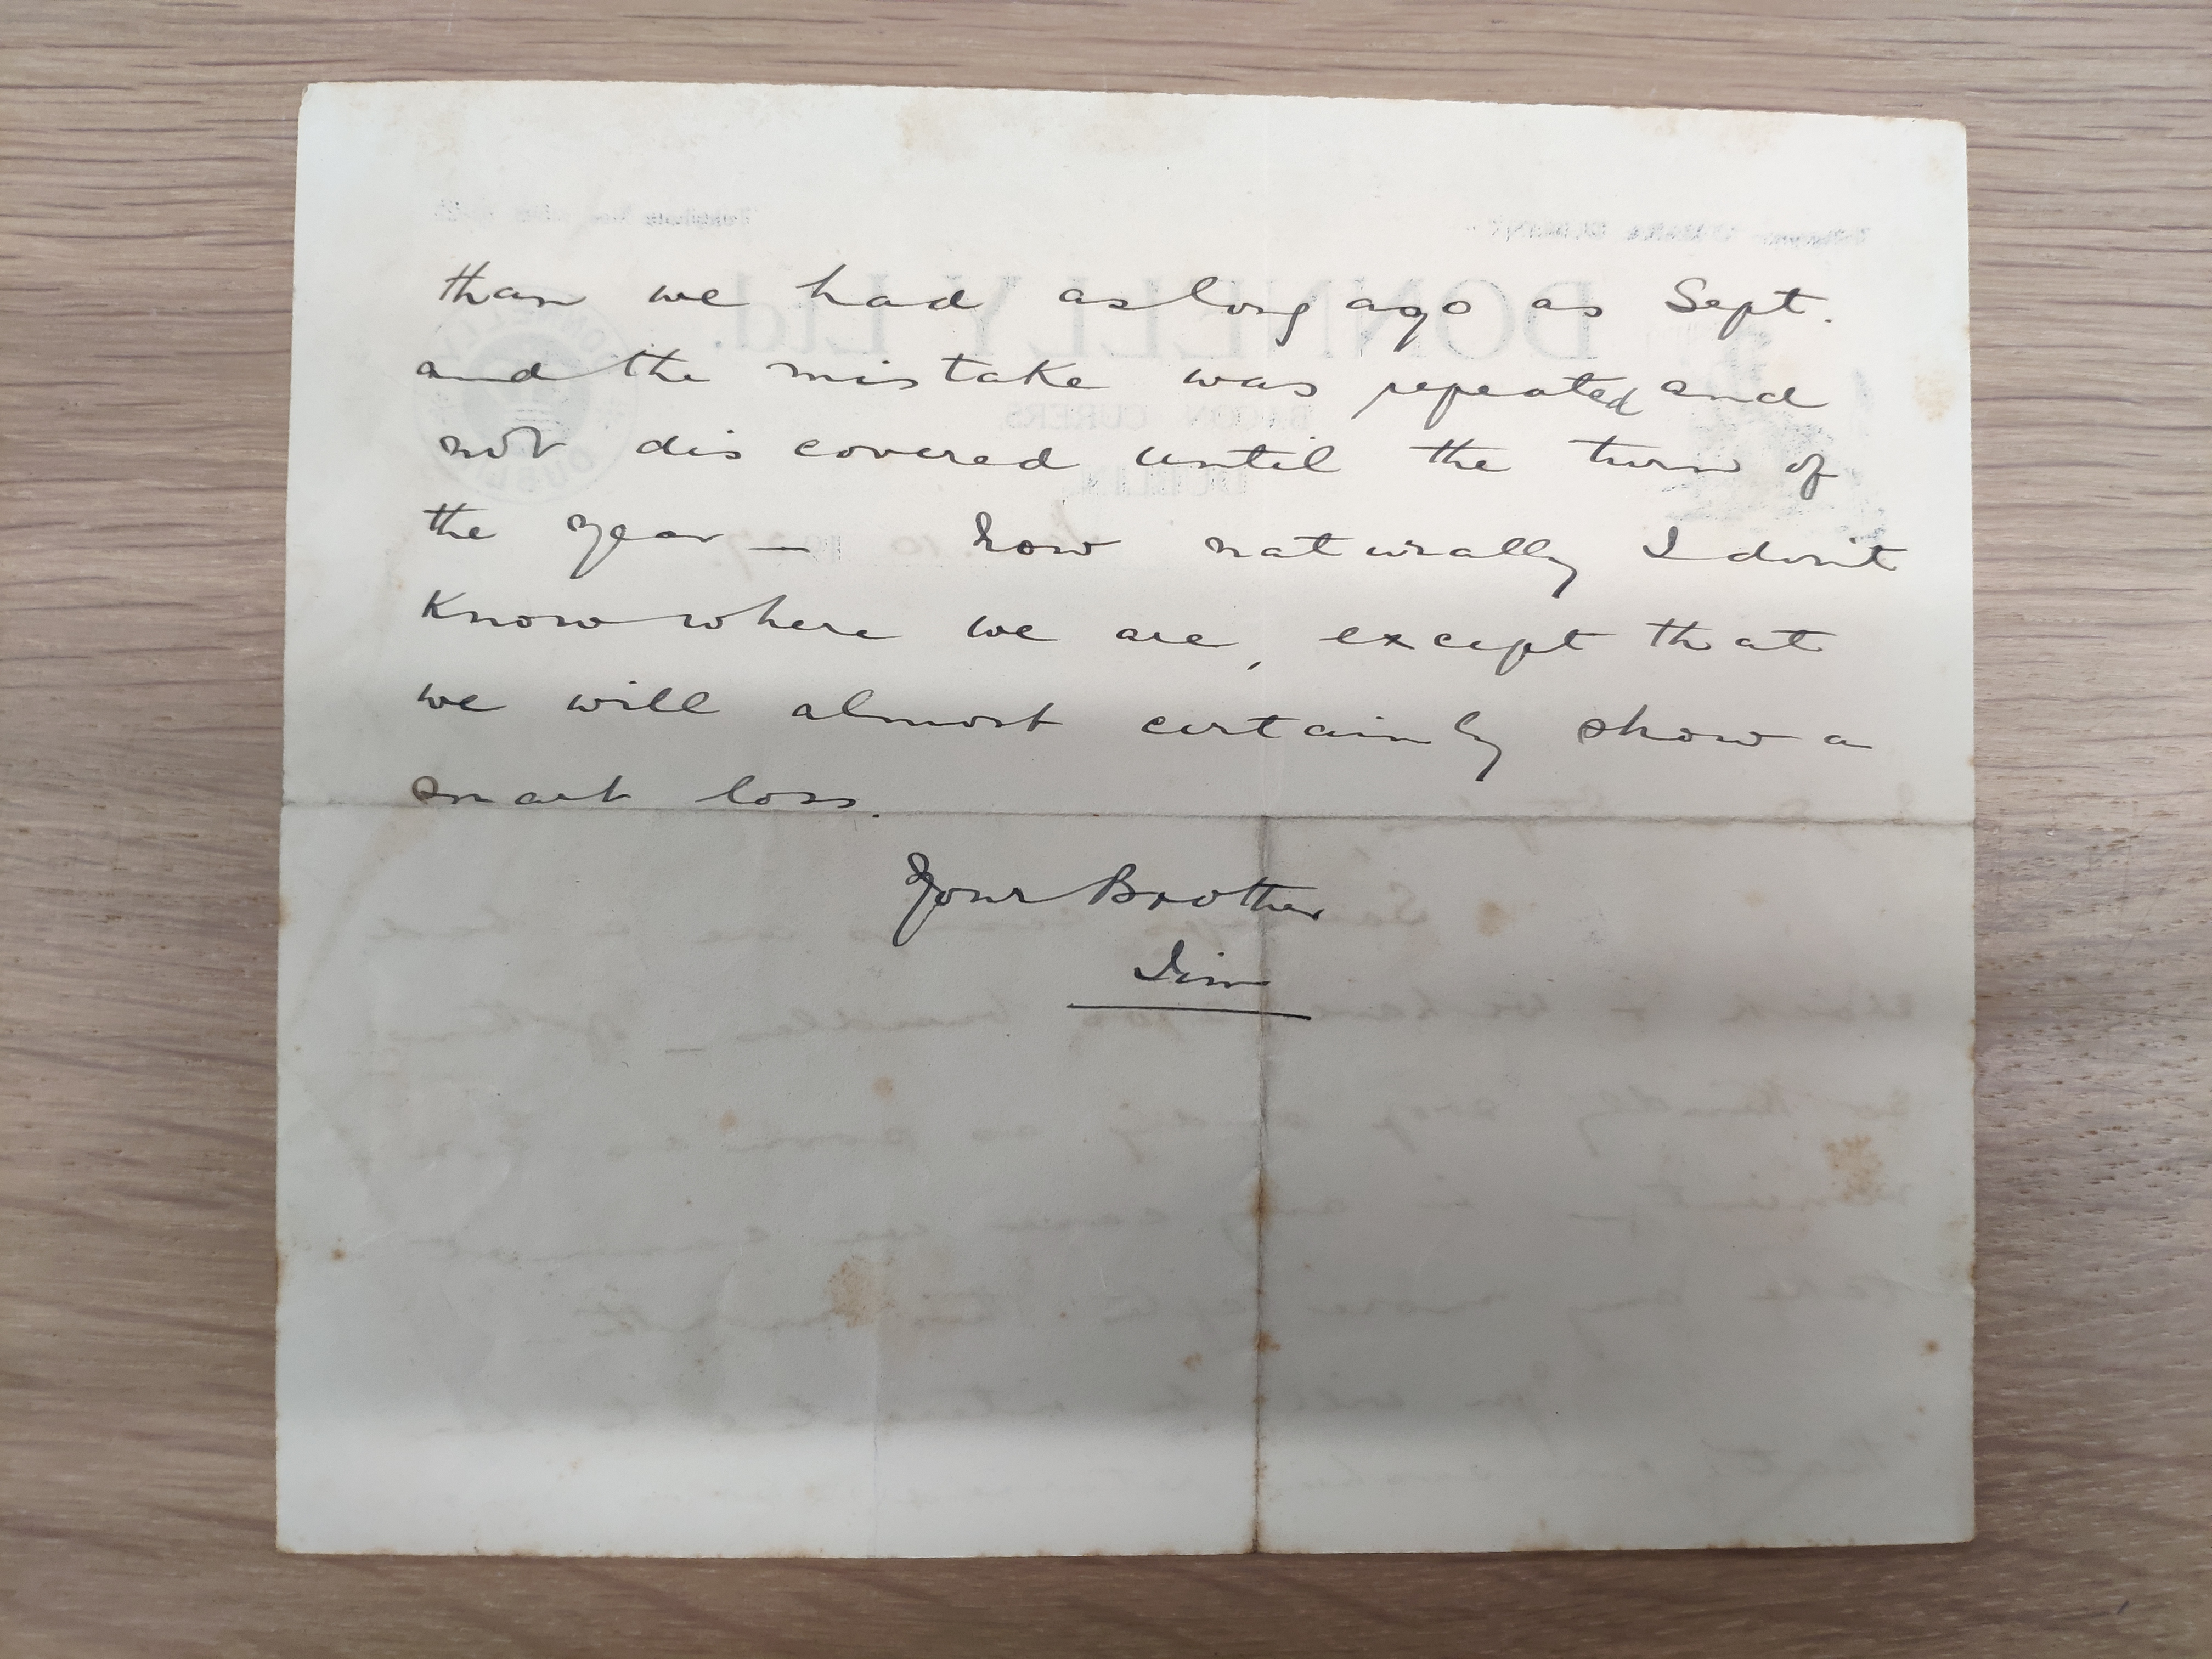 than we had as long ago as Sept.
and the mistake was repeated and
not discovered until the turn of
the year — how naturally I don't
know where we are, except that
we will almost certainly show a
smart loss.
Your Brother
Jim